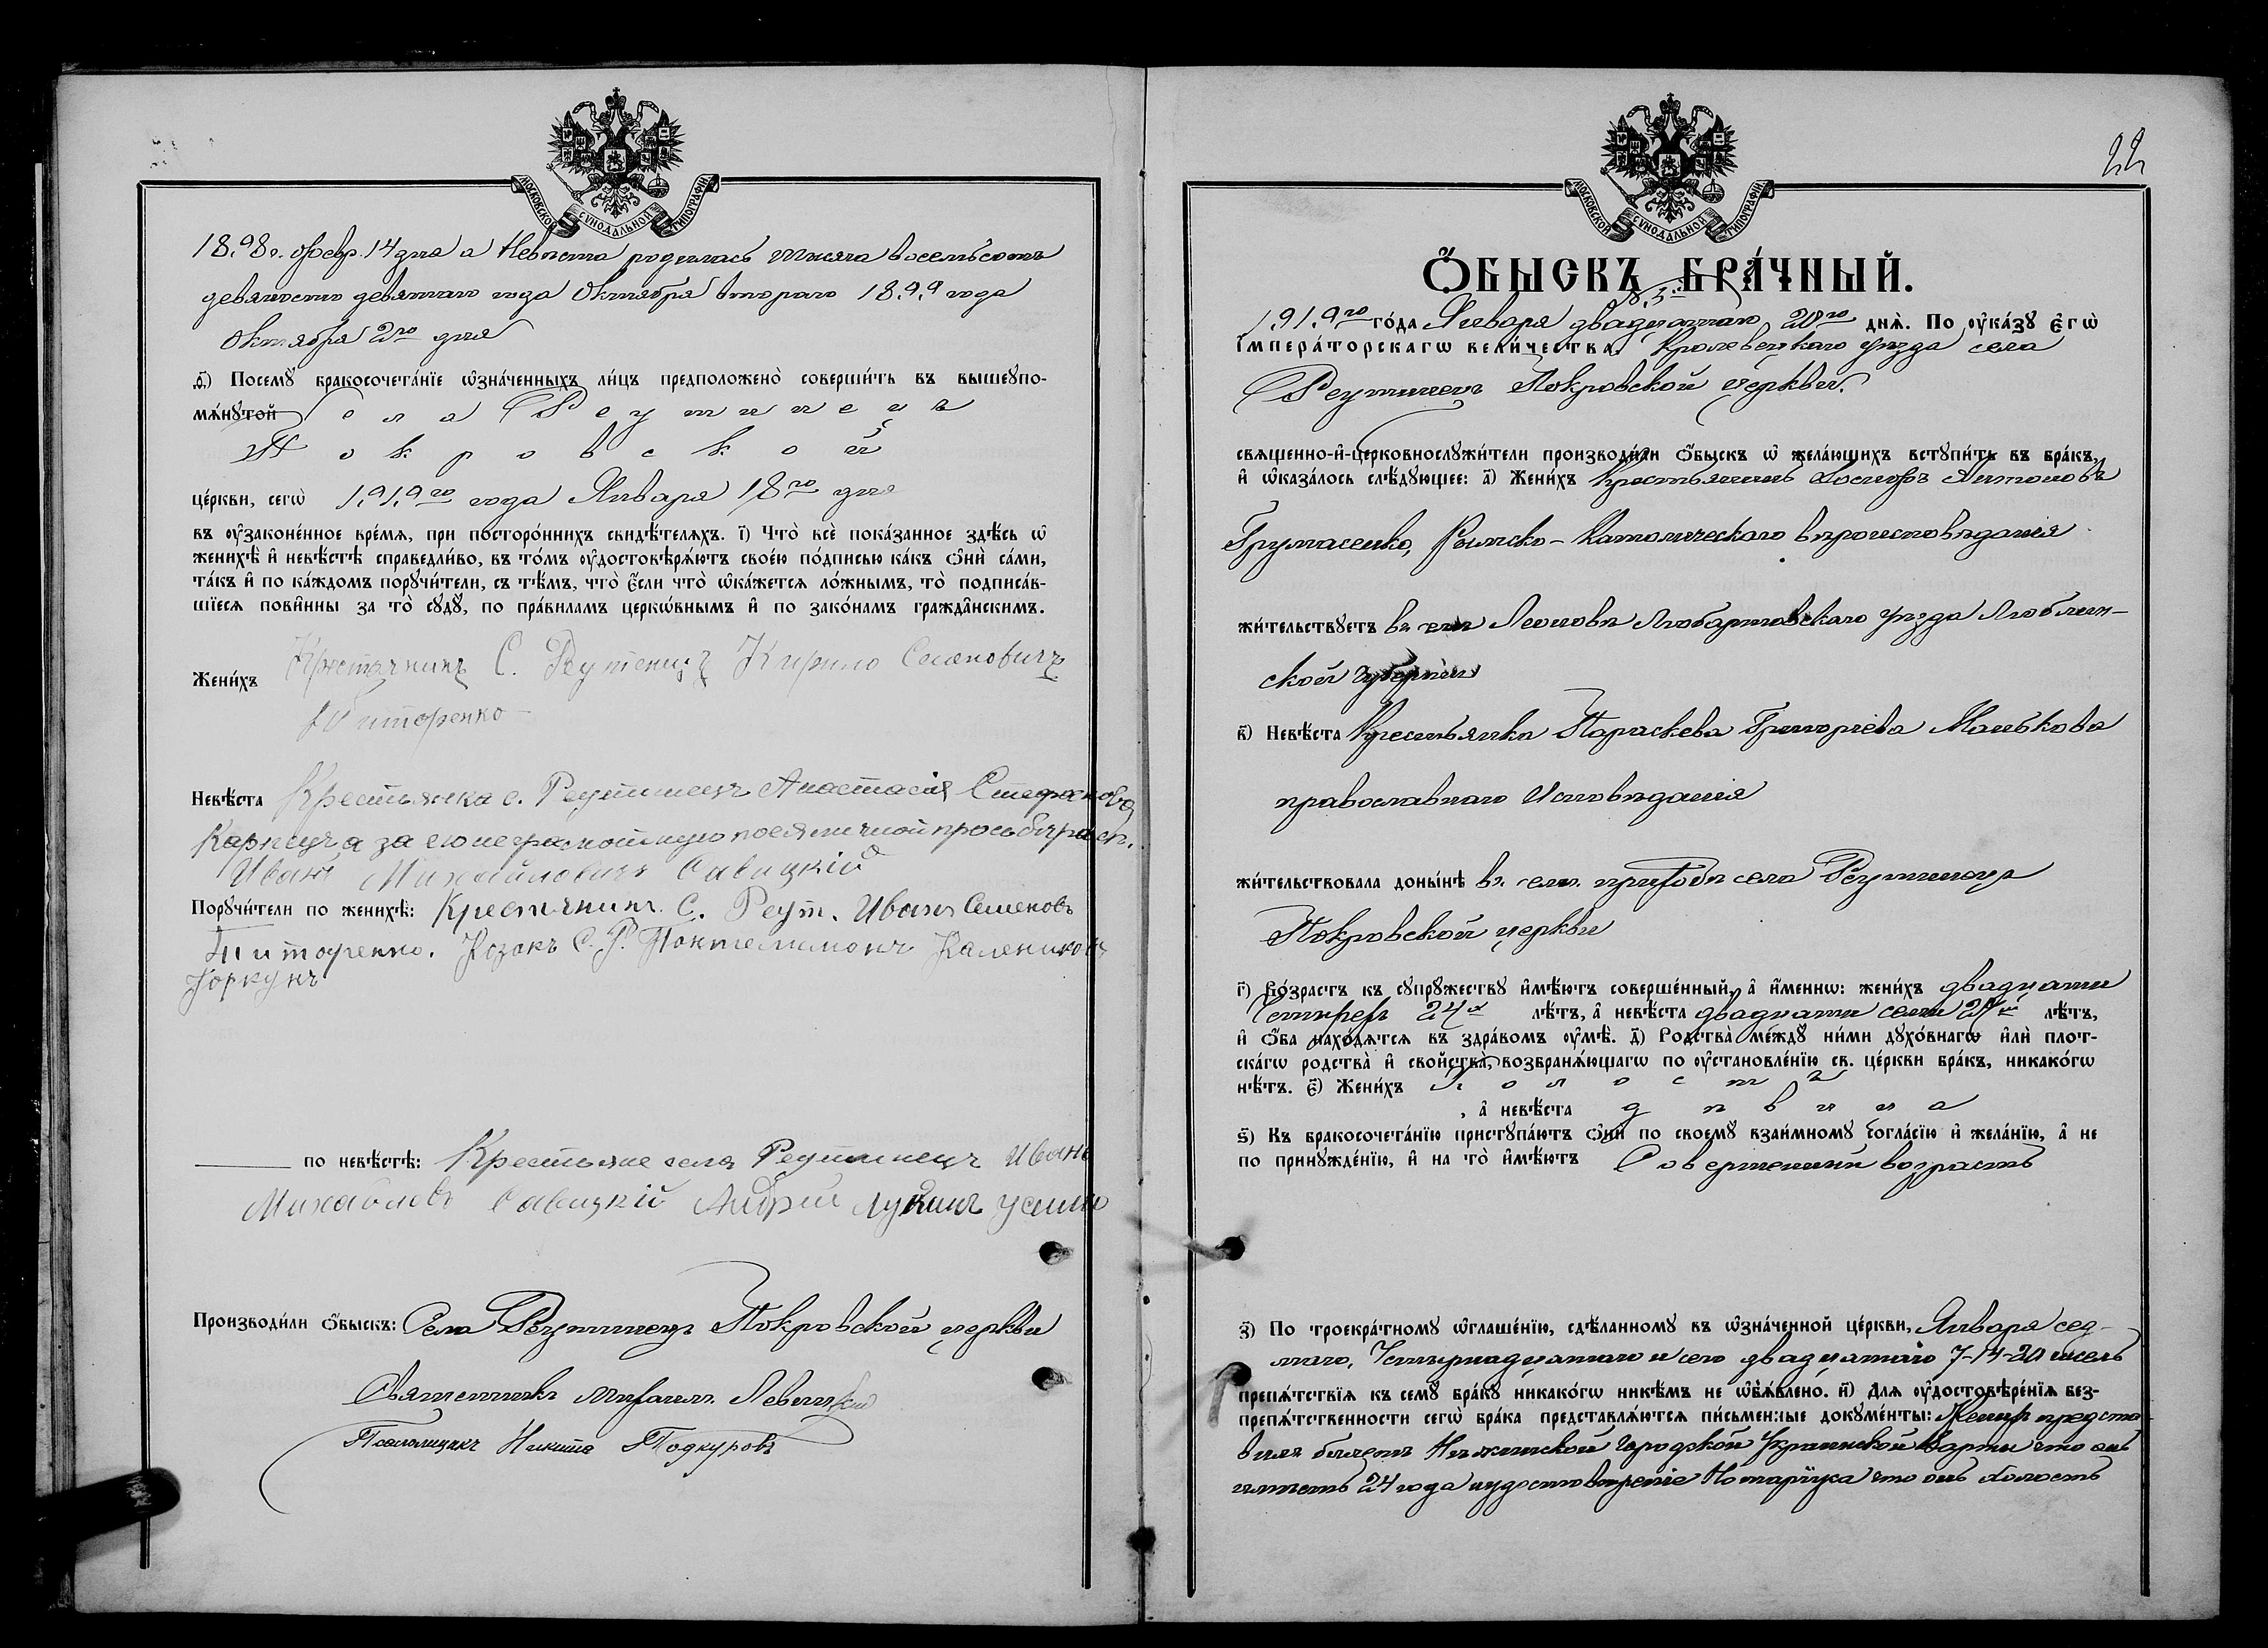 МОСКОВСКОЙ СѴНОДАЛЬНОЙ ТИПОГРАФІИ
1898 г. Февр. 14 дня а Невѣста родилась тысяча восемьсотъ
девяносто девятаго года Октября второго 1899 года
Октября 2го дня
ѳ҃) Посемꙋ̀ бракосочета́нїе ѡ҆зна́ченныхъ ли́цъ предположено̀ соверши́ть въ вышеꙋпо-
мѧ́нꙋтой села Реутинецъ
Покровской
це́ркви, сегѡ̀ 1919го года Января 18го дня
въ ᲂу҆законе́нное вре́мѧ, при посторо́ннихъ свидѣ́телѧхъ. і҃) Что̀ всѐ пока́занное здѣ́сь ѡ҆
женихѣ̀ и҆ невѣ́стѣ справедли́во, въ то́мъ ᲂу҆достовѣрѧ́ютъ свое́ю по́дписью ка́къ ѻ҆нѝ са́ми,
та́къ и҆ по ка́ждомъ порꙋчи́тели, съ тѣ́мъ, что̀ є҆́сли что̀ ѡ҆ка́жетсѧ ло́жнымъ, то̀ подписа́в-
шїесѧ пови́нны за то̀ сꙋдꙋ̀, по пра́виламъ церкѡ́внымъ и҆ по зако́намъ гражда̑нскимъ.
Жени́хъ Крестянинъ С. Реутенцъ Кирило Семновичъ
Титоренко
Невѣ́ста Крестьянка с. Реутинецъ Анастасія Стефанова
Карпецъ, а за ею неграмотную по ея личной просьбѣ расп.
Иванъ Михайловичъ Савицкій
Порꙋчи́тели по женихѣ̀: Крестянинъ С. Реут. Иванъ Семеновъ
Титоренко. Козакъ С. Р. Пантелимонъ Калениковъ
Коркунъ
по невѣ́стѣ: Крестьяне села Реутинецъ Иванъ
Михайловъ Савицкій Андрей Лукинъ Усикъ
Производи́ли ѻ҆́быскъ: Села Реутинецъ Покровской церкви
Священникъ Михаилъ Левицкій
Псаломщикъ Никита Подкуровъ
22
МОСКОВСКОЙ СѴНОДАЛЬНОЙ ТИПОГРАФІИ
Ѻ҆́БЫСКЪ БРА́ЧНЫЙ.
1919го го́да Января двадцатаго 20го днѧ̀. По ᲂу҆ка́зꙋ є҆гѡ̀
і҆мпера́торскагѡ вели́чества, Кролевецкаго уѣзда села
Реутинецъ Покровской церкви
свѧще́нно-и҆-церковнослꙋжи́тели производи́ли ѻ҆́быскъ ѡ҆ жела́ющихъ встꙋпи́ть въ бра́къ,
и҆ ѡ҆каза́лось слѣ́дꙋющее: а҃) Жени́хъ Крестьянинъ Іосифъ Антоновъ
Римско-Католическаго вѣроисповѣданія
жи́тельствꙋетъ въ селѣ Леоновѣ Любартовскаго уѣзда Люблин-
ской губерніи
в҃) Невѣ́ста Крестьянка Параскева Григоріева Манькова
православнаго Исповѣданія
жи́тельствовала доны́нѣ въ сем. приходѣ села Реутинецъ
Покровской церкви
г҃) Во́зрастъ къ сꙋпрꙋ́жествꙋ и҆мѣ́ютъ соверше́нный, а҆ и҆́меннѡ: жени́хъ двадцати
Четырехъ 24х лѣ́тъ, а҆ невѣ́ста двадцати семи 27и лѣ́тъ,
и҆ ѻ҆́ба нахо́дѧтсѧ въ здра́вомъ ᲂу҆мѣ̀. д҃) Родства̀ междꙋ̀ ни́ми дꙋхо́внагѡ и҆лѝ плот-
ска́гѡ родства̀ и҆ свойства̀, возбранѧ́ющагѡ по ᲂу҆становле́нїю св. це́ркви бра́къ, никако́гѡ
нѣ́тъ. є҃) Жени́хъ холостъ
, а҆ невѣ́ста дѣвица
ѕ҃) Къ бракосочета́нїю пристꙋпа́ютъ ѻ҆нѝ по своемꙋ̀ взаи́мномꙋ согла́сїю и҆ жела́нїю, а҆ не
по принꙋжде́нїю, и҆ на то̀ и҆мѣ́ютъ Совершенный возрастъ
з҃) По троекра́тномꙋ ѡ҆глаше́нїю, сдѣ́ланномꙋ въ ѡ҆зна́ченной це́ркви, Января сед-
маго, Четырнадцатаго и сего двадцатаго 7-14-20 числъ
препѧ́тствїѧ къ семꙋ̀ бра́кꙋ никако́гѡ никѣ́мъ не ѡ҆б̾ѧвлено̀. и҃) Для ᲂу҆достовѣре́нїѧ без-
препѧ́тственности сегѡ̀ бра́ка представлѧ́ютсѧ пи́сьменные докꙋме́нты: Женихъ предста-
вилъ билетъ Нѣжинской Городской Украинской Варты что онъ
имѣетъ 24 года и удостовѣреніе Нотаріуса что онъ холостъ